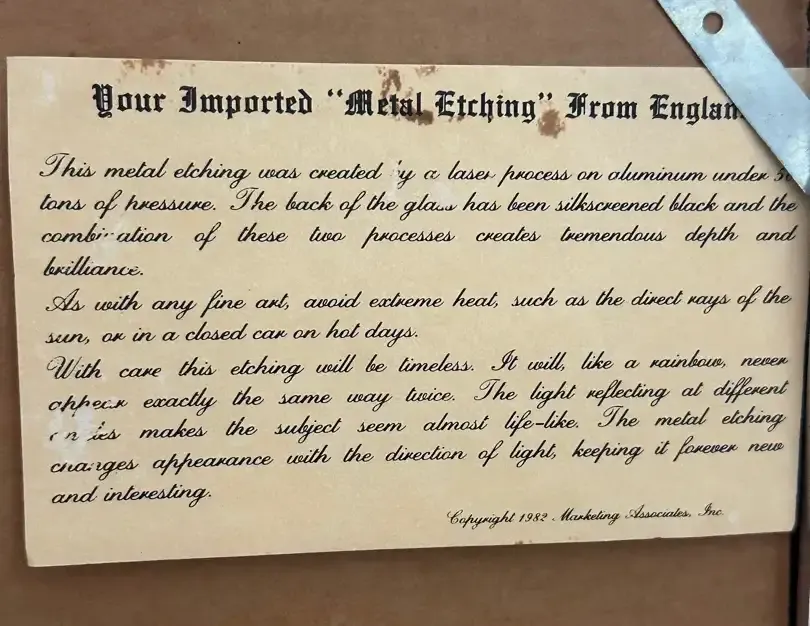 Your Imported "Metal Etching" From Englan
This metal etching was created y a laser process on aluminum under 50
tons of pressure. The back of the glass has been silkscreened black and the
combination of these two processes creates tremendous depth and
brilliance.
As with any fine art, avoid extreme heat, such as the direct rays of the
sun, or in a closed car on hot days.
With care this etching will be timeless. It will, like a rainbow, never
appear exactly the same way twice. The light reflecting at different
makes the subject seem almost life-like. The metal etching
changes appearance with the direction of light, keeping it forever new
and interesting.
Copyright 1982 Marketing Associates, Inc.